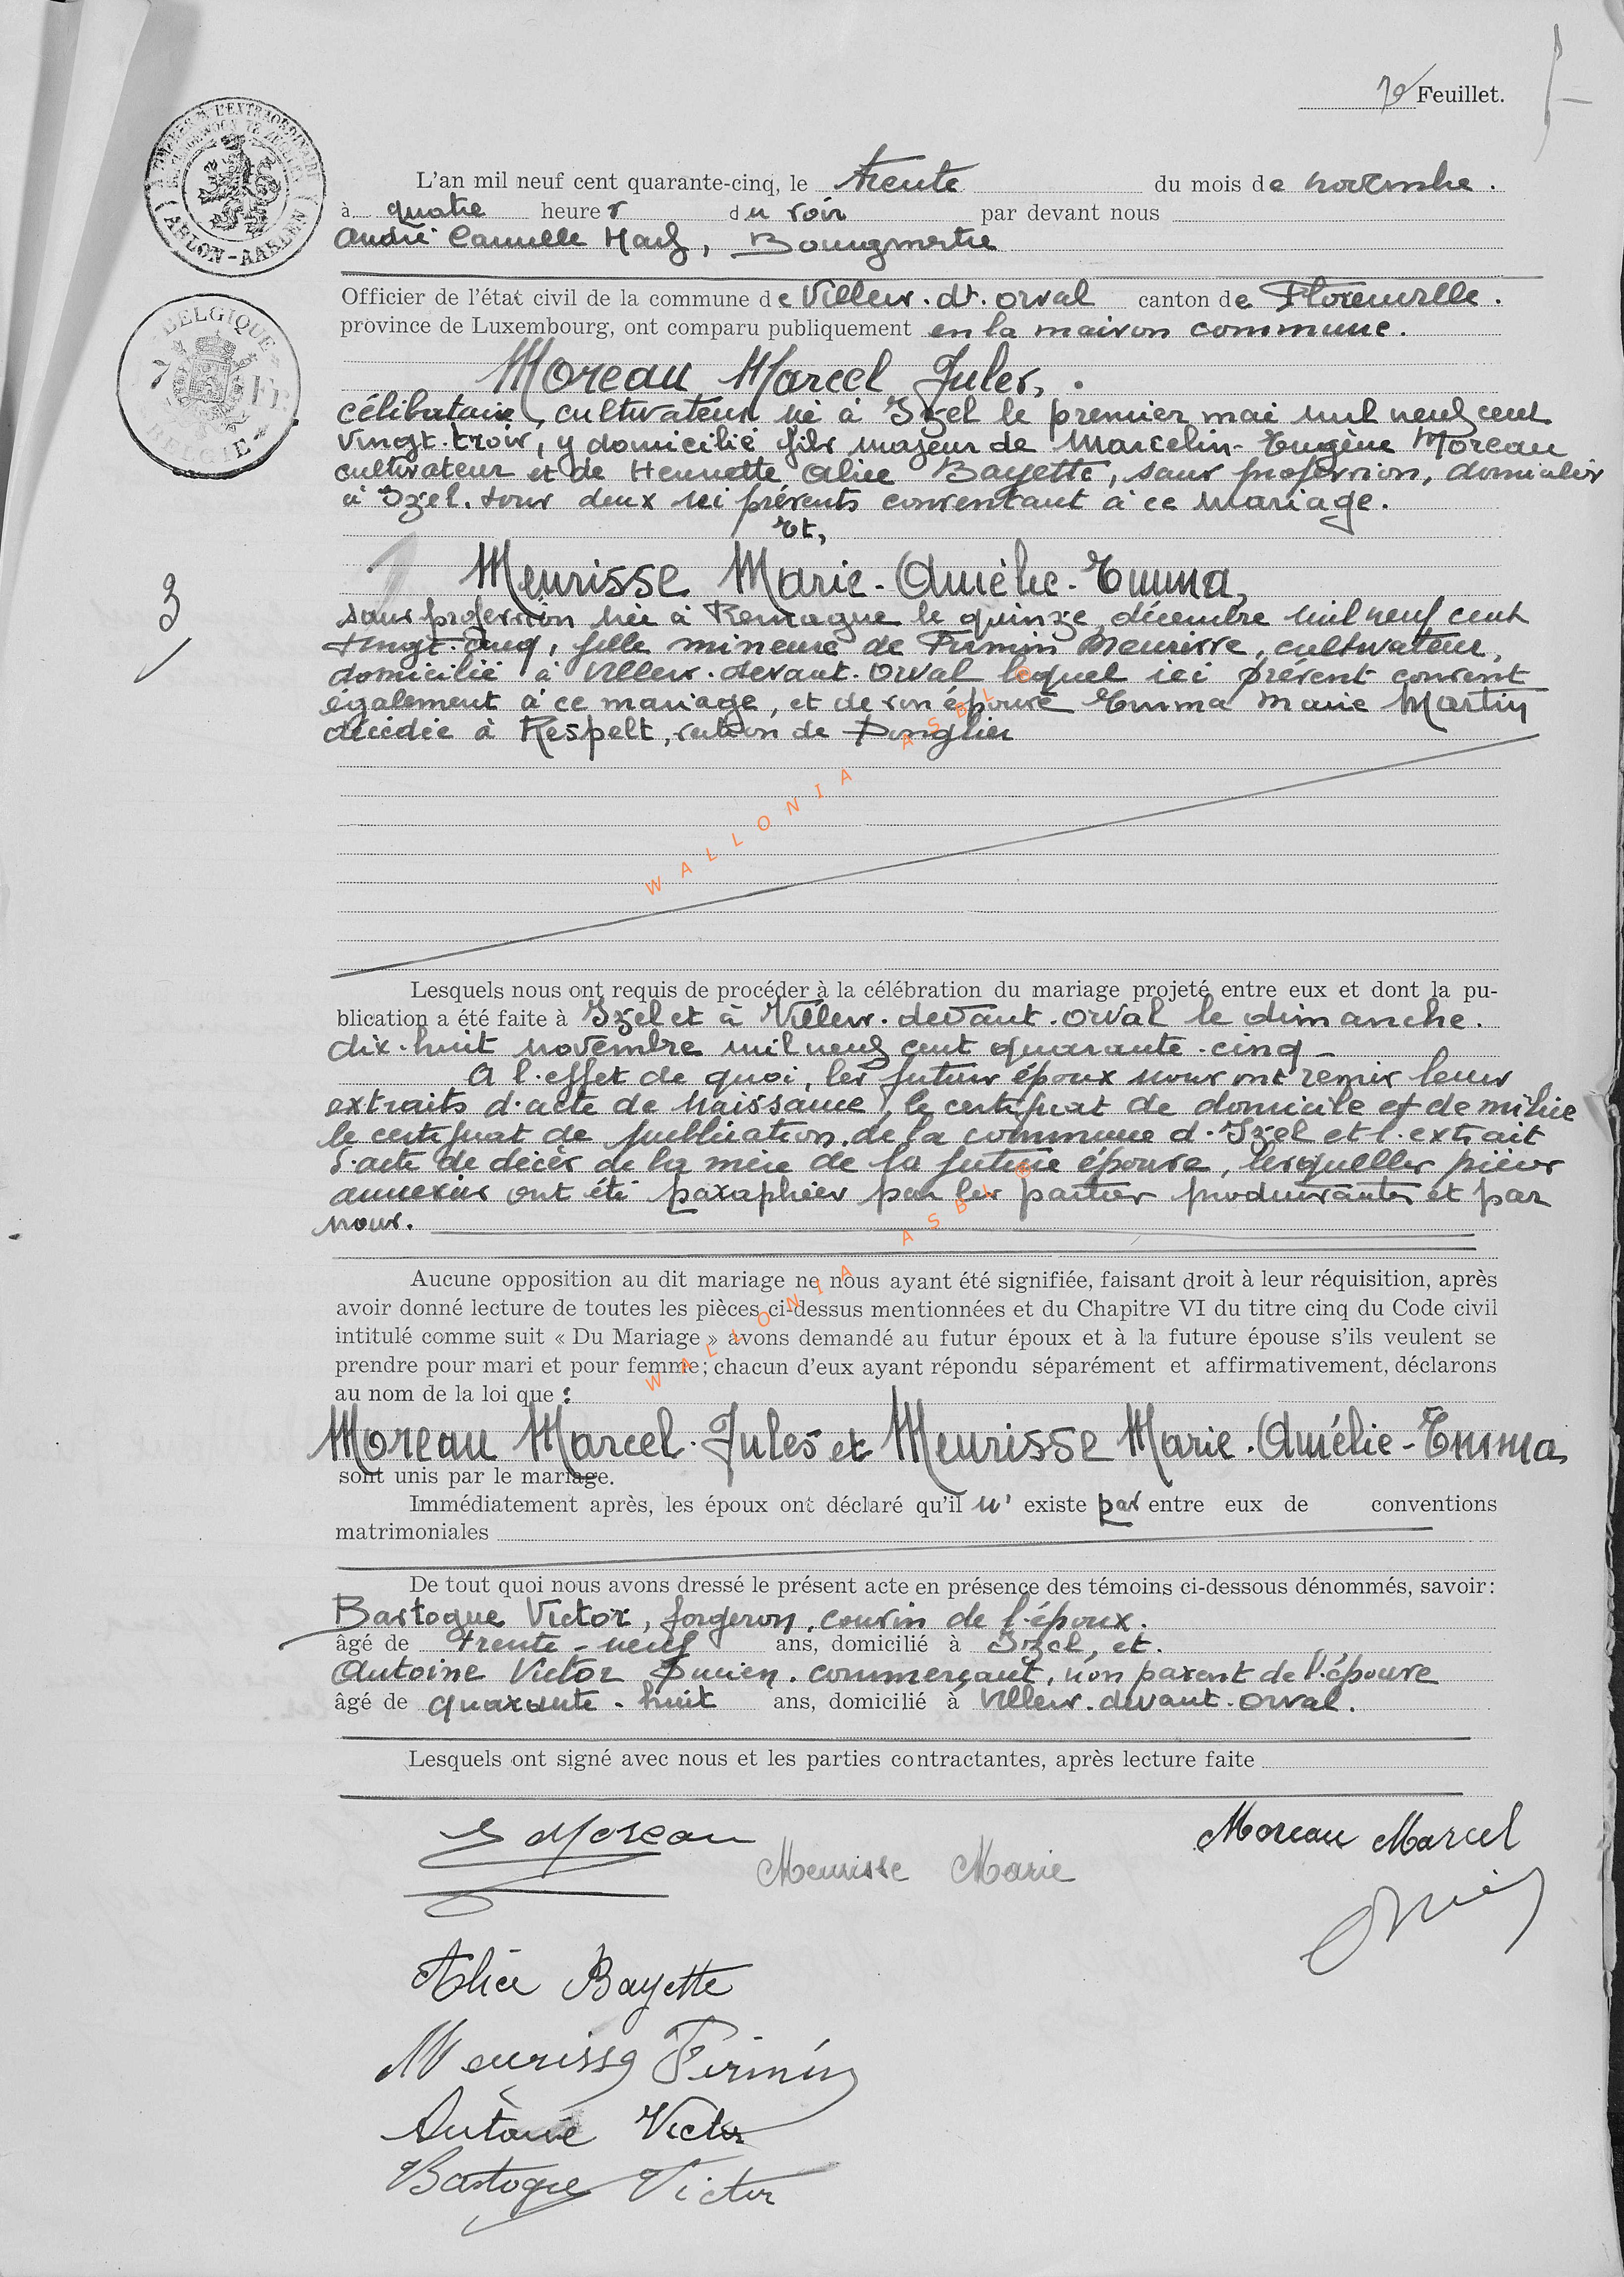 7e Feuillet.
TIMBRE À L'EXTRAORDINAIRE
ARLON-AARLEN
L'an mil neuf cent quarante-cinq, le trente du mois de novembre.
à quatre heures du soir par devant nous
André Camille Bourgmestre
BELGIQUE
7 Fr
BELGIE
Officier de l'état civil de la commune de Villers. dt. Orval canton de Florenville.
province de Luxembourg, ont comparu publiquement en la maison commune.
Moreau Marcel Jules,
célibataire, cultivateur né à Izel le premier mai mil neuf cent
vingt-trois, y domicilié fils majeur de Marcelin-Eugène Moreau
cultivateur et de Henriette Alice Bayette, sans profession, domiciliés
à Izel. tous deux ici présents consentant à ce mariage.
Et,
Meurisse Marie-Amélie-Emma,
3
sans profession née à Remagne le quinze décembre mil neuf cent
vingt-cinq, fille mineure de Firmin Meurisse, cultivateur,
domicilié à Villers-devant-Orval lequel ici présent consent
également à ce mariage, et de son épouse Emma Marie Martin
décédée à Respelt, section de Longlier
WALLONIA ASBL ©
Lesquels nous ont requis de procéder à la célébration du mariage projeté entre eux et dont la pu-
blication a été faite à Izel et à Villers-devant-Orval le dimanche
dix-huit novembre mil neuf cent quarante-cinq
A l'effet de quoi, les futurs époux nous ont remis leurs
extraits d'acte de naissance, le certificat de domicile et de milice
le certificat de publication de la commune d'Izel et l'extrait
d'acte de décès de la mère de la future épouse, lesquelles pièces
annexées ont été paraphées par les parties produisantes et par
nous.
Aucune opposition au dit mariage ne nous ayant été signifiée, faisant droit à leur réquisition, après
avoir donné lecture de toutes les pièces ci-dessus mentionnées et du Chapitre VI du titre cinq du Code civil
intitulé comme suit « Du Mariage » avons demandé au futur époux et à la future épouse s'ils veulent se
prendre pour mari et pour femme; chacun d'eux ayant répondu séparément et affirmativement, déclarons
au nom de la loi que :
WALLONIA ASBL ©
Moreau Marcel-Jules et Meurisse Marie-Amélie-Emma
sont unis par le mariage.
Immédiatement après, les époux ont déclaré qu'il n' existe pas entre eux de conventions
matrimoniales
De tout quoi nous avons dressé le présent acte en présence des témoins ci-dessous dénommés, savoir:
Bastogne Victor, forgeron, cousin de l'époux.
âgé de trente-neuf ans, domicilié à Izel, et.
Antoine Victor Lucien. commerçant, non parent de l'épouse
âgé de quarante-huit ans, domicilié à Villers-devant-Orval.
Lesquels ont signé avec nous et les parties contractantes, après lecture faite
E Moreau
Moreau Marcel
Meurisse Marie
Alice Bayette
Meurisse Firmin
Antoine Victor
Bastogne Victor